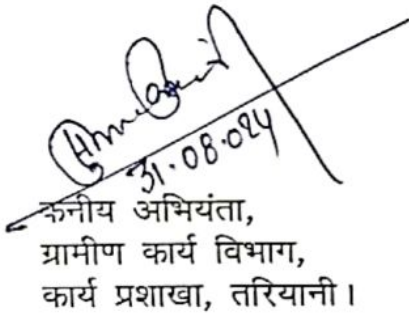 31.08.024
कनीय अभियंता,
ग्रामीण कार्य विभाग,
कार्य प्रशाखा, तरियानी।